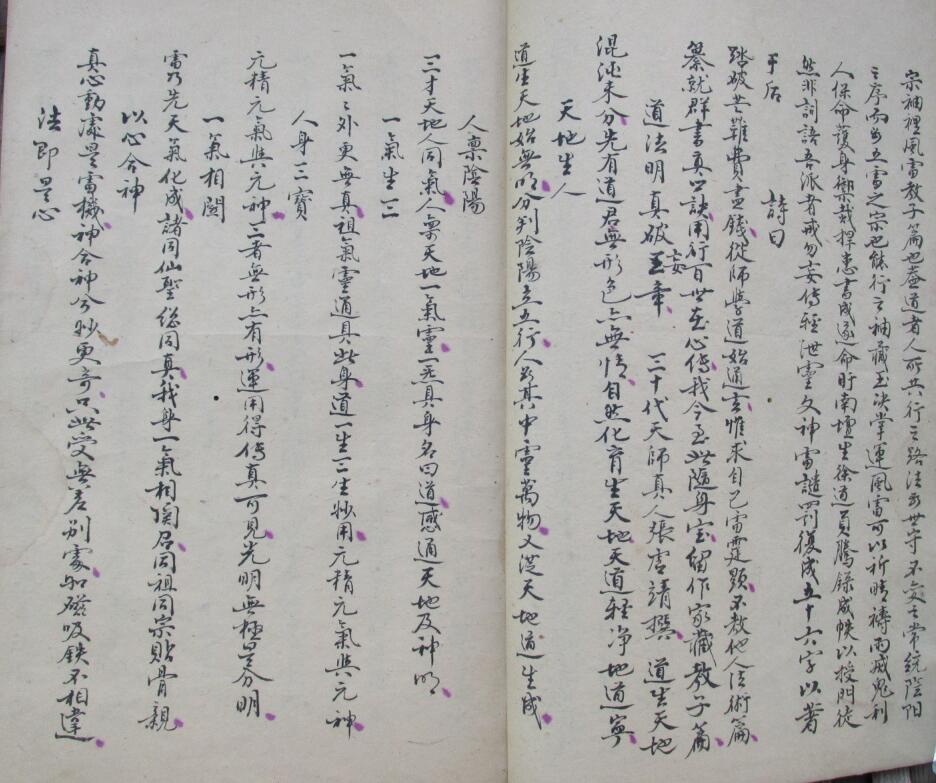 宗袖裡風雷教子篇也蓋道者人所共行之路法乃世守不變之常統陰陽
之序而為五雷之宗也能行之袖藏玉決掌運風雷可以祈晴禱雨戒鬼利
人保命護身禦災捍患書成遂命盱南壇生徐道員騰錄成帙以授門徒
然非詞語吾派者戒勿妄傳輕泄靈文神雷譴罰復成五十六字以著
于后　　詩曰
踏破芒鞋費盡錢從師學道始通玄惟求自己雷霆顯不教他人法術篇
纂就群書真口訣用行百世在心傳我今至此隨身寶留作家藏教子篇
道法明真破妄章　三十代天師真人張虛靖撰　道生天地
混沌未分先有道君無形色亦無情自然化育生天地天道輕净地道寧
天地生人
道生天地始無明分判陰陽立五行人為其中靈萬物又從天地道生成
人稟陰陽
一三才天地人同氣人稟天地一氣靈一炁具身名曰道感通天地及神明
一氣生三
一氣之外更無真祖氣靈通具此身道一生三三生妙用元精元氣與元神
人身三寶
元精元氣與元神三者無形亦有形運用得傳真可見光明無極是分明
一氣相關
雷乃先天氣化成諸同仙聖總同真我身一氣相関召同祖同宗貼骨親
以心合神
真心動處是雷機神合神兮妙更奇只此受無差別處如磁吸鉄不相違
法即是心